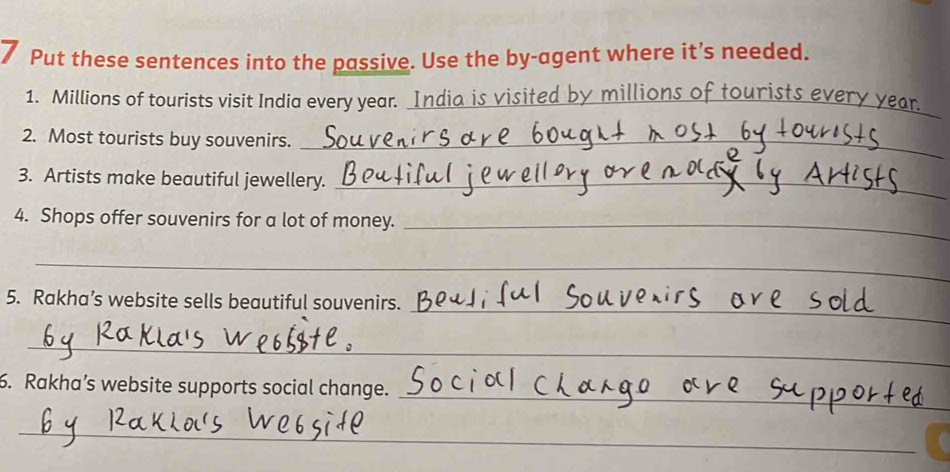 7 Put these sentences into the passive. Use the by-agent where it's needed.
1. Millions of tourists visit India every year. India is visited by millions of tourists every year.
2. Most tourists buy souvenirs. Souvenirs are bought most by tourists
3. Artists make beautiful jewellery. Beutiful jewellory are made by Artists
4. Shops offer souvenirs for a lot of money.
5. Rakha's website sells beautiful souvenirs. Beutiful souvenirs are sold
by Rakla's website.
6. Rakha's website supports social change. Social chango are supported
by Rakla's website